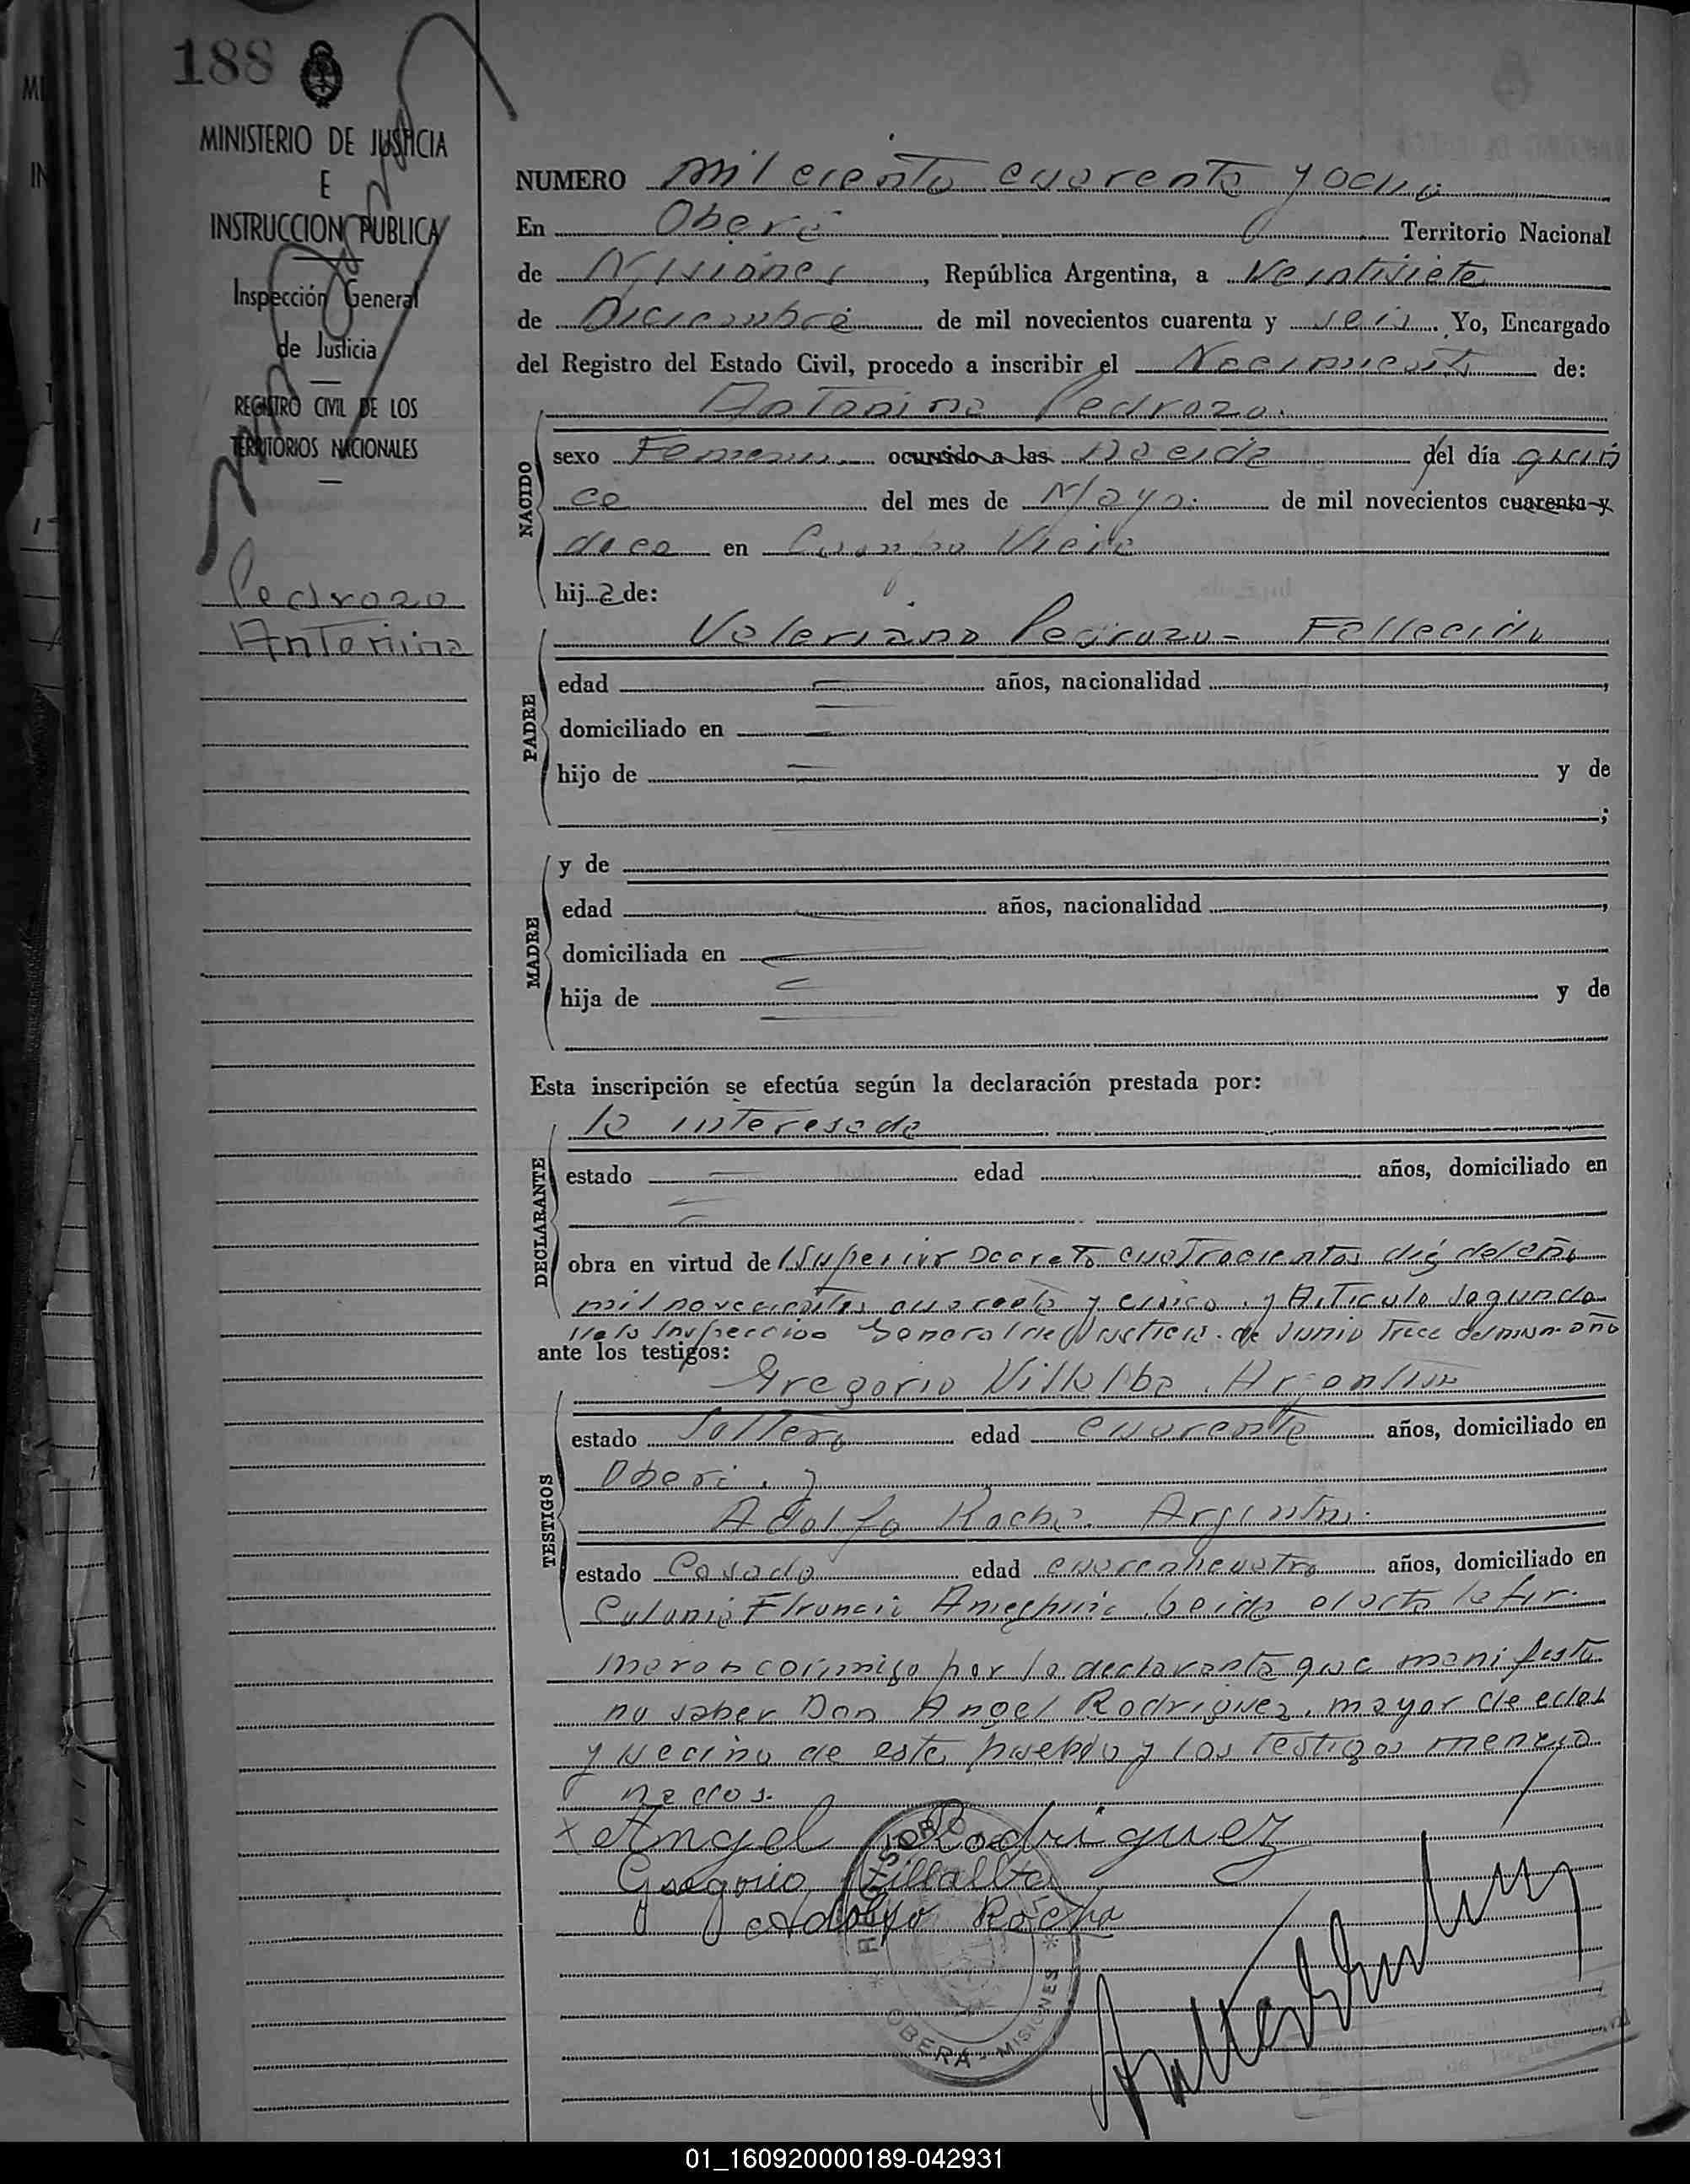 188
MINISTERIO DE JUSTICIA
E
INSTRUCCION PUBLICA
Inspección General
de Justicia
REGISTRO CIVIL DE LOS
TERRITORIOS NACIONALES
Pedrozo
Antonina
NUMERO mil ciento cuarenta y ocho
En Oberá Territorio Nacional
de Misiones, República Argentina, a veintisiete
de Diciembre de mil novecientos cuarenta y seis. Yo, Encargado
del Registro del Estado Civil, procedo a inscribir el Nacimiento de:
Antonina Pedrozo.
NACIDO
sexo Femenino ocurrido a las Nacida del día quin
ce del mes de Mayo de mil novecientos cuarenta y
doce en Campo Viera
hija de:
PADRE
Valeriano Pedrozo - Fallecido
edad años, nacionalidad ,
domiciliado en
hijo de y de
;
MADRE
y de
edad años, nacionalidad ,
domiciliada en
hija de y de
Esta inscripción se efectúa según la declaración prestada por:
DECLARANTE
la interesada
estado edad años, domiciliado en
obra en virtud del Superior Decreto cuatrocientos del año
mil novecientos cuarenta y cinco y Articulo segundo
de la Inspeccion General de Justicia de Junio trece del mismo año
ante los testigos:
TESTIGOS
Gregorio Villalba. Argentino
estado Soltero edad cuarenta años, domiciliado en
Oberá. y
Adolfo Rocha. Argentino.
estado Casado edad cuarenticuatro años, domiciliado en
Colonia Ameghino. Leida el acta la fir.
maron conmigo por la declarante que manifesto
no saber Don Angel Rodriguez, mayor de edad
y vecino de este pueblo y los testigos mencio
nados.
x Angel Rodriguez
Gregorio Villalba
Adolfo Rocha
OBERÁ - MISIONES
01_160920000189-042931